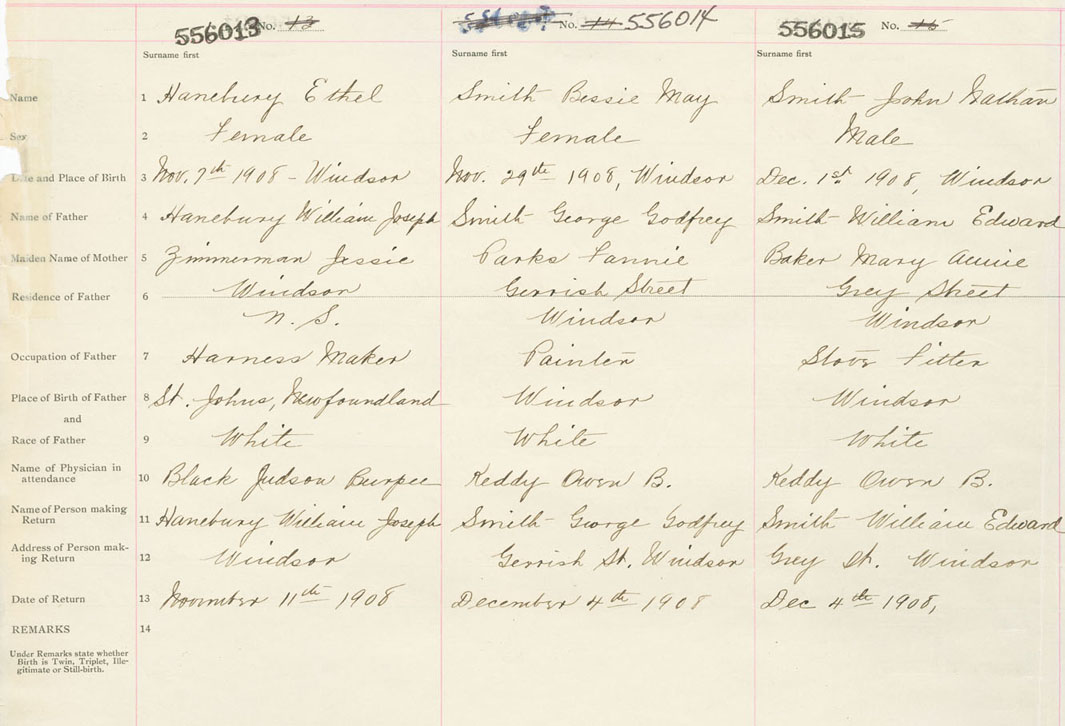 556013 No. 13 No. 14 556014 556015 No. 15
Surname first Surname first Surname first
Name 1 Hanebury Ethel Smith Bessie May Smith John Nathan
Sex 2 Female Female Male
Date and Place of Birth 3 Nov. 7th 1908 - Windsor Nov. 29th 1908, Windsor Dec. 1st 1908, Windsor
Name of Father 4 Hanebury William Joseph Smith George Godfrey Smith William Edward
Maiden Name of Mother 5 Zimmerman Jessie Parks Fannie Baker Mary Annie
Residence of Father 6 Windsor Gerrish Street Grey Street
N. S. Windsor Windsor
Occupation of Father 7 Harness Maker Painter Stove Fitter
Place of Birth of Father 8 St. Johns, Newfoundland Windsor Windsor
and
Race of Father 9 White White White
Name of Physician in
attendance 10 Black Judson Burpee Keddy Owen B. Keddy Owen B.
Name of Person making
Return 11 Hanebury William Joseph Smith George Godfrey Smith William Edward
Address of Person mak-
ing Return 12 Windsor Gerrish St. Windsor Grey St. Windsor
Date of Return 13 November 11th 1908 December 4th 1908 Dec 4th 1908,
REMARKS 14
Under Remarks state whether
Birth is Twin, Triplet, Ille-
gitimate or Still-birth.